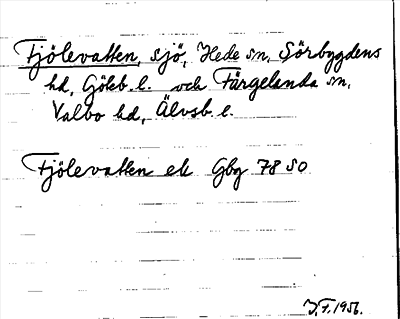 Tjölevatten, sjö, Hede sn, Sörbygdens
hd, Göteb. l. och Färgelanda sn,
Valbo hd, Älvsb. l.
Tjölevatten ek Gbg 78 SO
J.F. 1956.